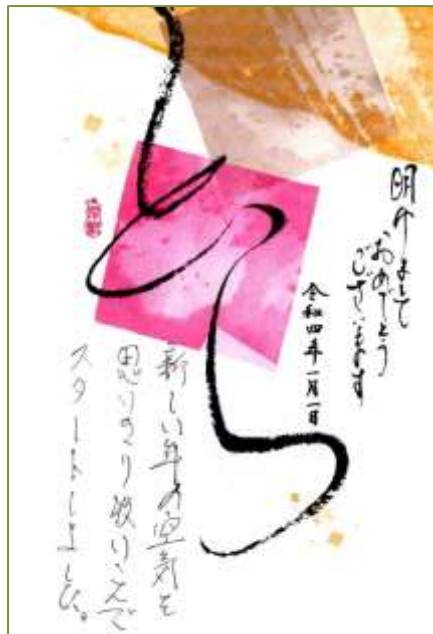 明けまして
おめでとう
ございます
令和四年一月一日
とら
新しい年の空気を
思いきり吸いこんで
スタートしました。